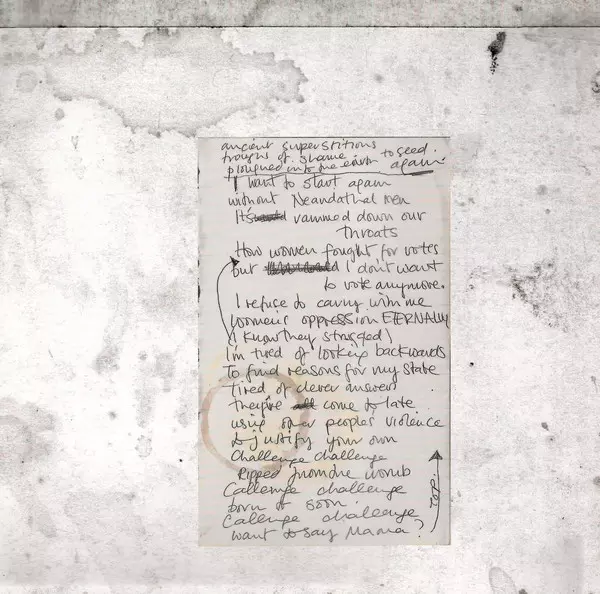 ancient superstitions
troughs of shame
ploughed into the earth to seed again
I want to start again
without Neandathal men
It's rammed down our
throats
How women fought for votes
but I don't want
to vote anymore.
I refuse to carry with me
women's oppression ETERNALLY
I know they struggled
I'm tired of looking backwards
To find reasons for my state
tired of clever answers
they're all come to late
using other peoples violence
to justify your own
Challenge challenge
Ripped from the womb
Callenge challenge
born so soon.
Callenge challenge
want to say Mama?
TOP